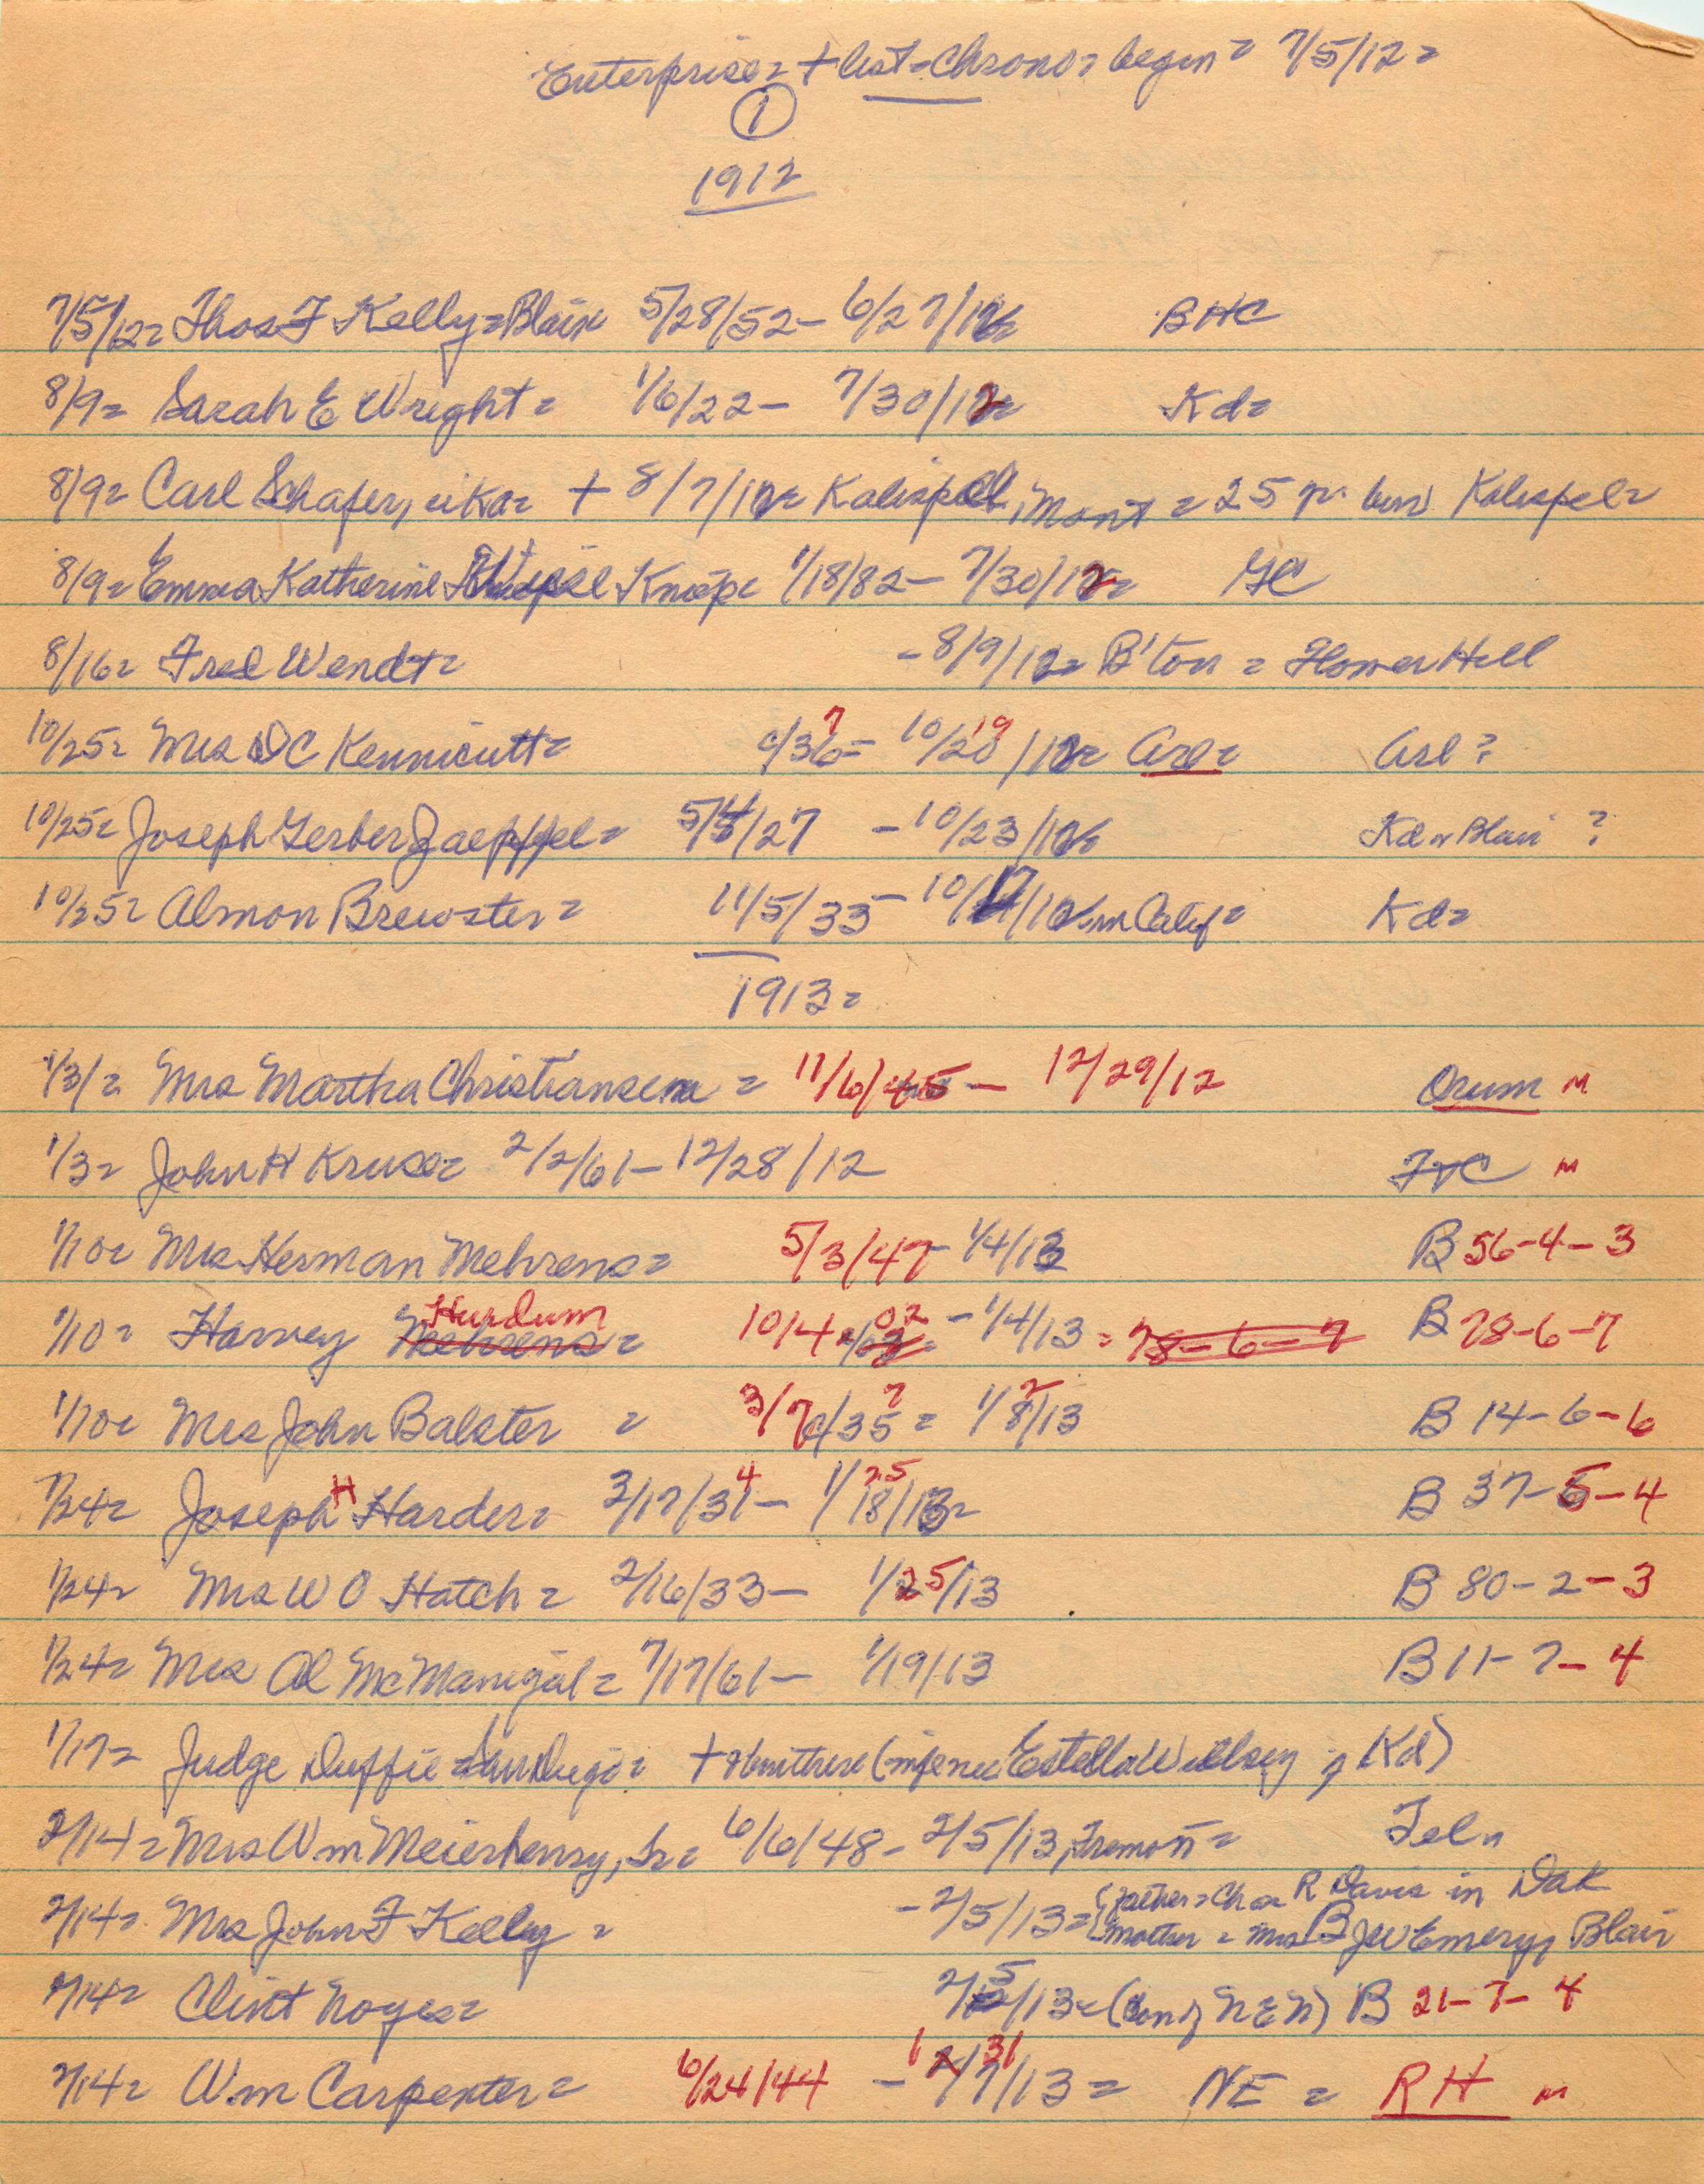 Enterprise = + list = Chrono = begin = 7/5/12 =
1
1912
7/5/12 = Thos F Kelly = Blair 5/28/52 - 6/27/12 = BHC
8/9 = Sarah E Wright = 1/6/22 - 7/30/12 = Kd =
8/9 = Carl Schafer, = + 8/7/12 = Kalispell, Mont = 25 Kalispel =
8/9 = Emma Katherine Knap = 1/18/82 - 7/30/12 = GC
8/16 = Fred Wendt = - 8/9/12 = B'ton = Flower Hill
10/25 = Mrs DC Kennicutt = /36 7 = 10/20 19 /12 = Arl = Arl ?
10/25 = Joseph Gerber Jaeppel = 5/4/27 - 10/23/12 = Kd or Blair ?
10/25 = Almon Brewster = 11/5/33 - 10/17/12 = in Calif = Kd =
1913 =
1/3/ = Mrs Martha Christiansen = 11/6/45 - 12/29/12 Orum M
1/3 = John H Kruse = 2/2/61 - 12/28/12 M
1/10 = Mrs Herman Mehrens = 5/3/47 - 1/4/13 B 56-4-3
1/10 = Harvey Mehrens Hurdum = 10/4 02 - 1/4/13 = 78-6-7 B 78-6-7
1/10 = Mrs John Balster = 3/7/35 7 = 1/8 2/13 B 14-6-6
1/24 = Joseph H Harder = 3/17/31 4 - 1/18 25/13 = B 37-5-4
1/24 = Mrs W O Hatch = 2/16/33 - 1/25/13 B 80-2-3
1/24 = Mrs Al McManigal = 7/17/61 - 1/19/13 B 11-7-4
1/17 = Judge Duffie = San Diego = + (wife nee Estella Willsey of Kd)
2/14 = Mrs Wm Meierhenry, Sr = 6/6/48 - 2/5/13, Fremont = Tel
2/14 = Mrs John F Kelly = - 2/5/13 = {father = Chas R Davis in Dak
mother = Mrs B JW Emery, Blair
2/14 = Clint Noyes = 2/5/13 = (son of N E N) B 21-7-4
2/14 = Wm Carpenter = 6/24/44 - 1 2/7 31/13 = NE = RH M